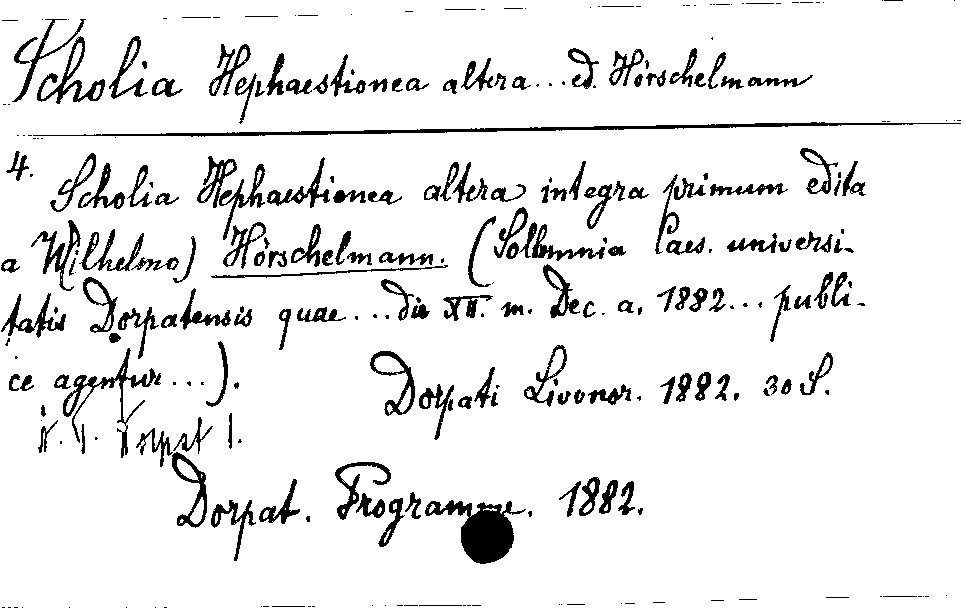 Scholia Hephaestionea altera... ed. Hörschelmann
4.
Scholia Hephaestionea altera integra primum edita
a W(ilhelmo) Hörschelmann. (Sollemnia Caes. universi-
tatis Dorpatensis quae... die XII. m. Dec. a. 1882... publi-
ce agentur...).
Dorpati Livonor. 1882. 30 S.
Dorpat. Programme. 1882.